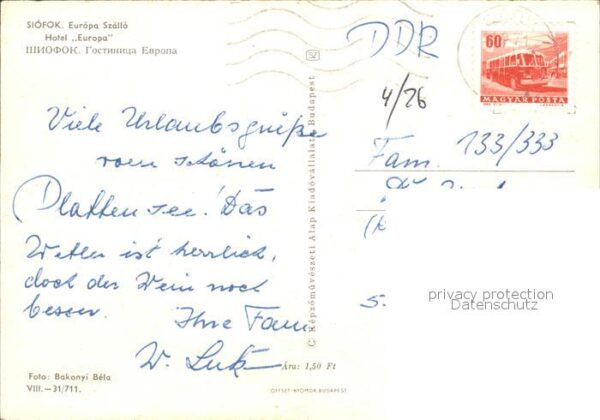 SIÓFOK. Európa Szálló
Hotel „Europa"
ШИОФОК. Гостиница Европа
DDR
60f
MAGYAR POSTA
4/26
133/333
Fam.
Viele Urlaubsgrüße
vom schönen
Plattensee! Das
Wetter ist herrlich,
doch der Wein noch
besser.
Ihre Fam
W. Luk
5.
privacy protection
Datenschutz
C Képzőművészeti Alap Kiadóvállalata, Budapest
Ára: 1,50 Ft
Foto: Bakonyi Béla
VIII.—31/711.
OFFSET-NYOMDA, BUDAPEST